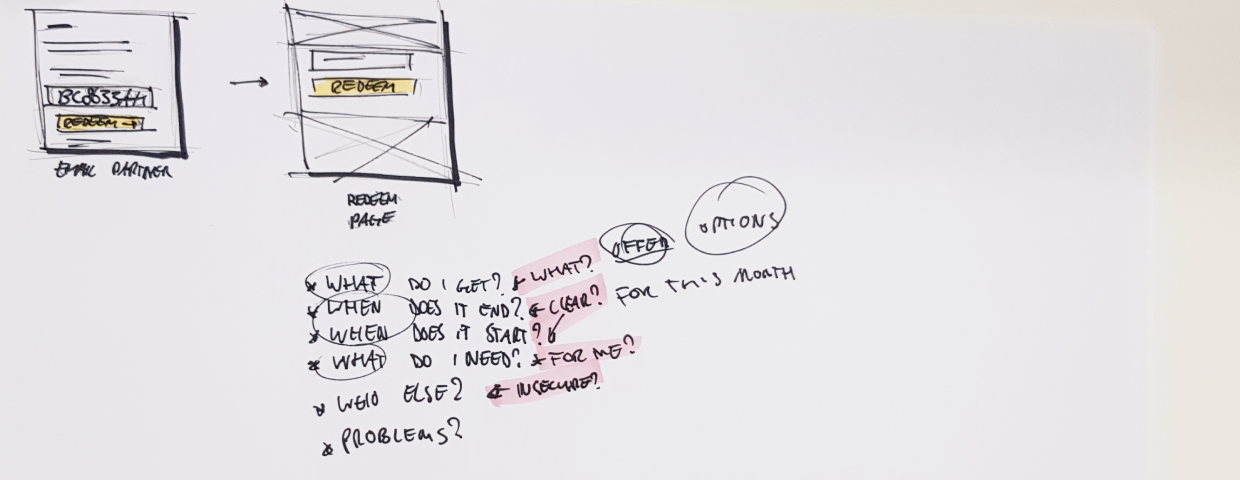 REDEEM →
EMAIL PARTNER
→
REDEEM
REDEEM
PAGE
OFFER
OPTIONS
* WHAT DO I GET? ← WHAT?
* WHEN DOES IT END? ← CLEAR? FOR THIS MONTH
* WHEN DOES IT START?
* WHAT DO I NEED? ← FOR ME?
* ELSE? ← INSECURE?
* PROBLEMS?